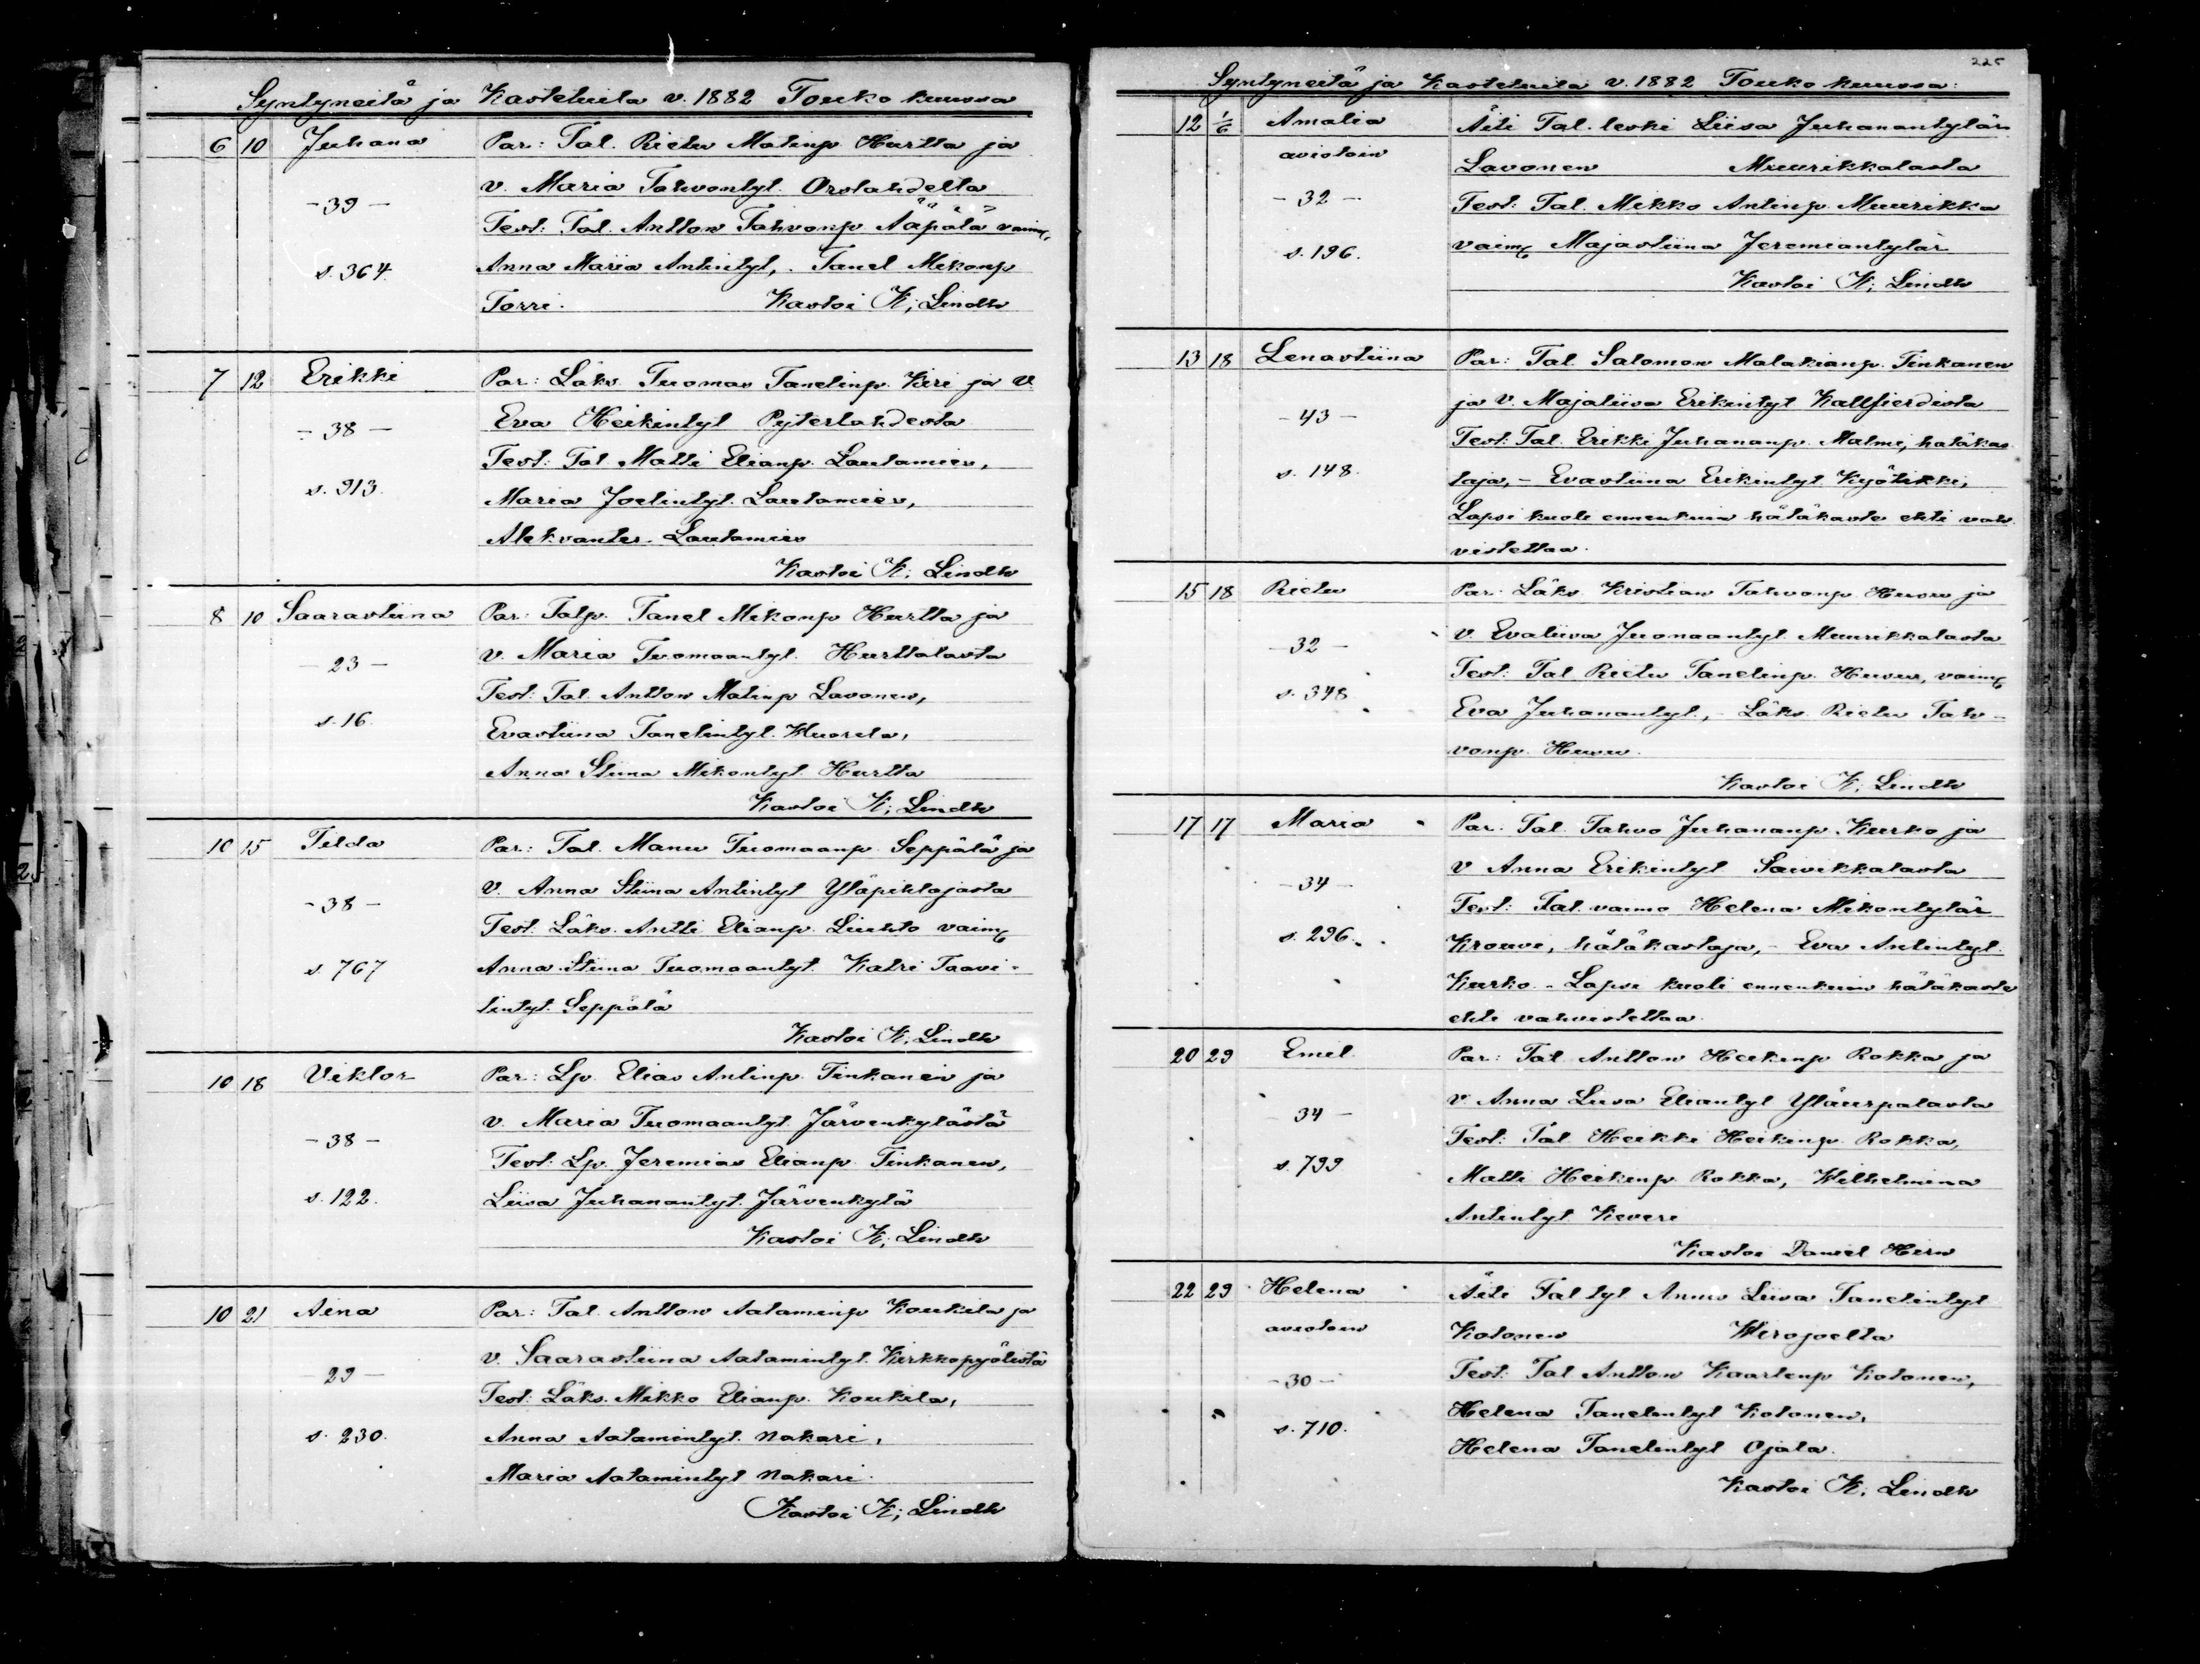 Syntyneitä ja Kastetuita v. 1882 Touko kuussa
6 10 Juhana Par: Tal. Rietu Matinp. Hurtta ja
v. Maria Tahvontyt. Orslahdelta
- 39 -
Test: Tal. Anttow Tahvonp Ääpälä vaim.
s. 364. Anna Maria Antintyt, . Tanel Mikonp
Torri. Kastoi K; Lindh
7 12 Erikki Par: Läks. Tuomas Tanelinp. Kiri ja v
- 38 - Eva Heikintyt Pyterlahdesta
Test: Tal. Matti Elianp. Lautamies,
s. 913. Maria Joelintyt. Lautamies,
Aleksanter. Lautamies
Kastoi K; Lindh
8 10 Saarastiina Par: Talp. Tanel Mikonp Hurtta ja
- 23 - v. Maria Tuomaantyt. Hurttalasta
Test: Tal. Anttow Matinp Lavonen,
s. 16. Evastiina Tanelintyt. Wuorela,
Anna Stiina Mikontyt Hurtta
Kastoi K; Lindh
10 15 Tilda Par: Tal. Manu Tuomaanp. Seppälä ja
- 38 - v. Anna Stiina Antintyt Yläpihlajasta
Test. Läks. Antti Elianp. Liuhto vaim
s. 767 Anna Stiina Tuomaantyt. Katri Taavi-
tintyt. Seppälä
Kastoi K; Lindh
10 18 Viktor Par: Lp. Elias Antinp. Tinkanen ja
- 38 - v. Maria Tuomaantyt. Järvenkylästä
Test: Lp. Jeremias Elianp. Tinkanen,
s. 122. Liisa Juhanantyt. Järvenkylä
Kastoi K; Lindh
10 21 Aina Par: Tal. Anttow Aataminp Koukila ja
- 29 - v. Saarastiina Aatamintyt. Kirkkopyölistä
Test: Läks. Mikko Elianp. Koukila,
s. 230. Anna Aatamintyt. Nakari,
Maria Aatamintyt Nakari.
Kastoi K; Lindh
225
Syntyneitä ja Kastetuita v. 1882 Touko kuussa:
12 1/6 Amalia Äiti Tal. leski Liisa Juhanantytär
aviotoin Lavonen Muurikkalasta
- 32 - Test: Tal. Mikko Antinp. Muurikka
s. 196. vaim Majastiina Jeremiantytär
Kastoi K; Lindh
13 18 Lenastiina Par: Tal. Salomon Malakianp. Tinkanen
- 43 - ja v. Majaliisa Erikintyt Kallfierdista
Test: Tal. Erikki Juhananp. Malmi, hätäkas
s. 148. taja, - Evastiina Erikintyt. Kyötikki,
Lapsi kuoli ennenkuin hätäkaste ehti vah
vistettaa.
15 18 Rietu Par: Läks. Kristian Tahvonp. Husu ja
- 32 - v. Evaliisa Juomaantyt Muurikkalasta
Test: Tal Rietu Tanelinp. Husu, vaim
s. 348 Eva Juhanantyt., - Läks. Rietu Tah-
vonp. Husu.
Kastoi K; Lindh
17 17 Maria Par. Tal. Tahvo Juhananp. Kurko ja
- 34 - v Anna Erikintyt Saivikkalasta
Test: Tal. vaimo Helena Mikontytär
s. 296. Krouvi, hätäkastaja, - Eva Antintyt.
Kurko. - Lapsi kuoli ennenkuin hätäkaste
ehti vahvistettaa.
20 29 Emil. Par: Tal Anttow Heikinp Rokka ja
34 - v. Anna Liisa Eliantyt Yläurpalasta
Test: Tal. Heikki Heikinp. Rokka,
s. 799 Matti Heikinp. Rokka, Wilhelmina
Antintyt Keveri
Kastoi Daniel Hirn
22 29 Helena Äiti Tal tyt Anna Liisa Tanelintyt
aviotoin Kotonen Wirojoelta
- 30 - Test: Tal Anttow Kaarlenp Kotonen,
s. 710. Helena Tanelintyt Kotonen,
Helena Tanelintyt Ojala.
Kastoi K; Lindh